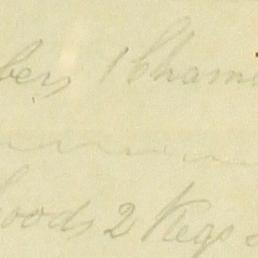 bers 1 Cham
Goods 2 Kegs